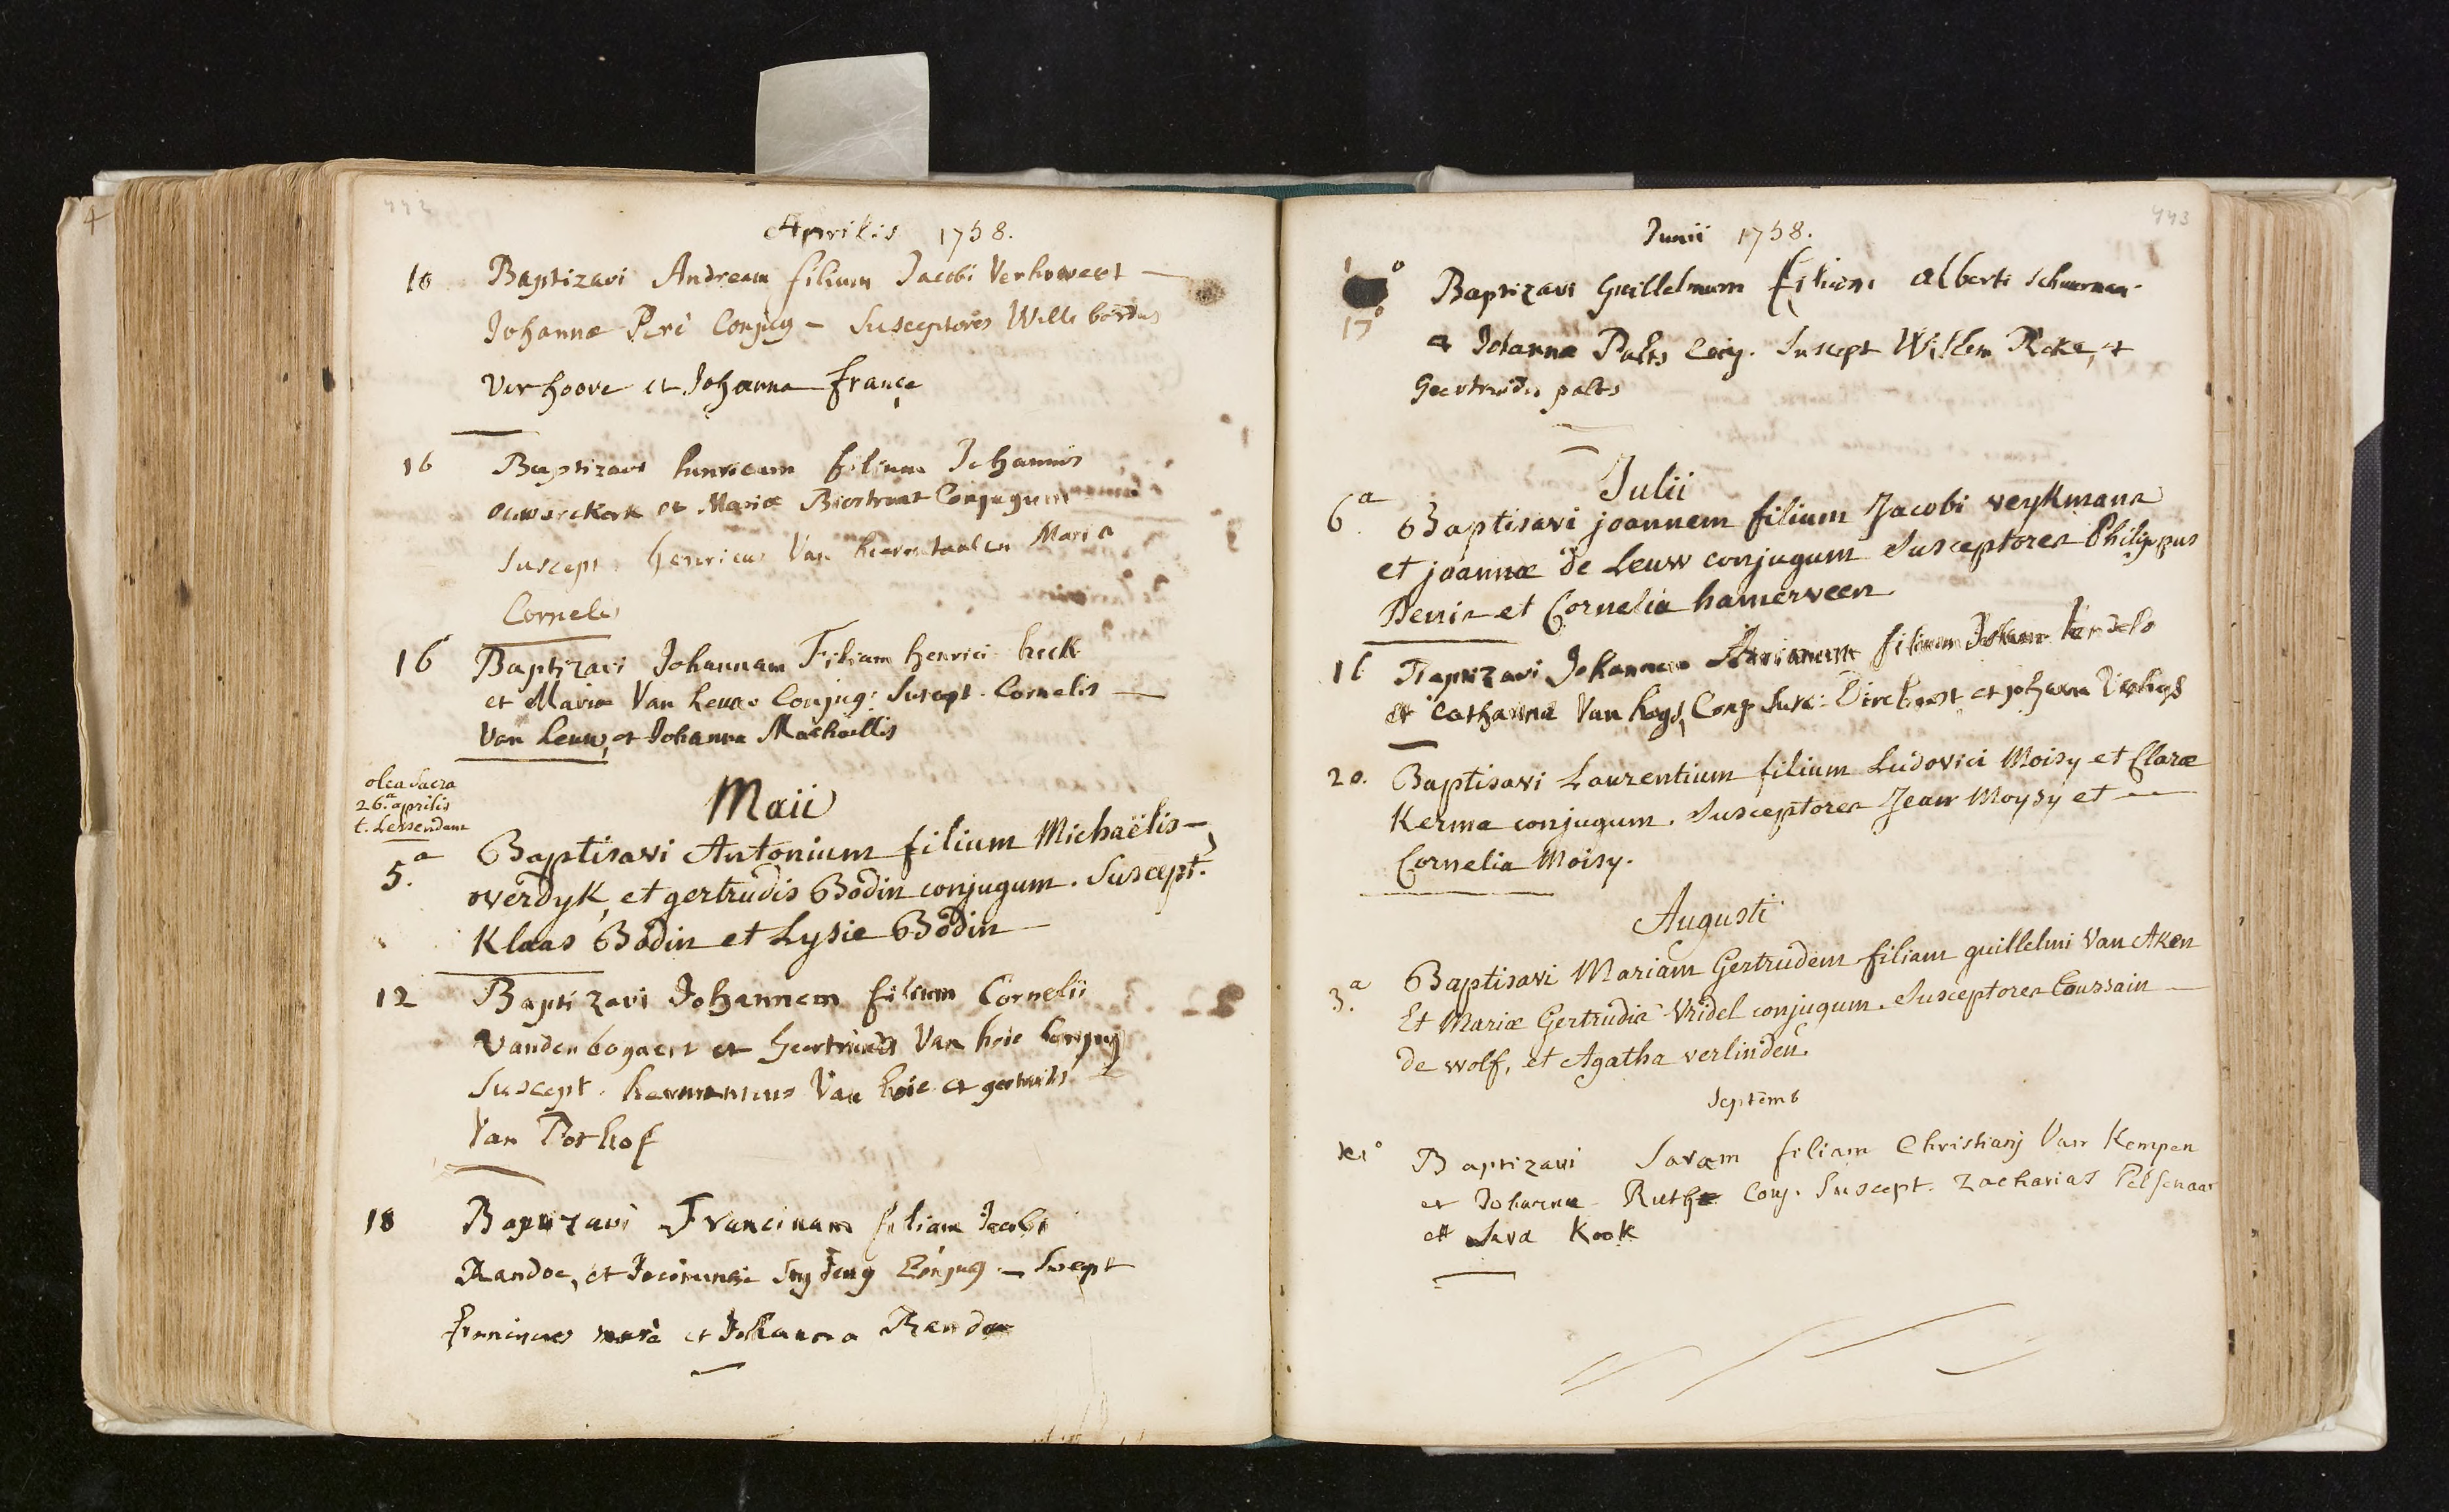 442
Aprilis 1758.
10 Baptizavi Andream filium Jacobi Verhoveet —
Johannæ Peri Conjug — Susceptores Wille bordus
Verhoove et Johanna france
16 Baptizavi henricum filium Johannis
ouwerckerk et Mariæ Biestraat Conjugum
Suscept. henricus Van heerentaalen Maria
Cornelis
16 Baptizavi Johannam Filiam henrici heck
et Mariæ Van Leuw Conjug: Suscept. Cornelis —
Van Leuw, et Johanna Machaellis
olea Sacra
26.a aprilis
t. Leysendam
Maii
5.a Baptisavi Antonium filium Michaëlis —
overdyk, et gertrudis Bodin conjugum. Suscept.
Klaas Bodin et Lysie Bodin —
12 Baptizavi Johannem filium Cornelii
Vandenbogaert et Geertrudis Van hoie Conjug
Suscept. hermannus Van hoie et gertrudis
Van Porhof
18 Baptizavi Francinam filiam Jacobi
Randoe, et Conjug — Suscept
et Johanna Randoe
443
Junii 1758.
17° Baptizavi Guillelmum filium alberti Schuurman
et Johannæ Palts Conj. Suscept Willem Roke, et
Geertrudis palts
Julii
6.a Baptisavi joannem filium Jacobi veykmans
et joannæ de Leuw conjugum Susceptores Philippus
Denis et Cornelia hamerveen.
16 Baptizavi Johannem Adrianum filium
et Catharina Van Conj Susc: et Johanna
20. Baptisavi Laurentium filium Ludovici Moisy et Claræ
Kerma conjugum. Susceptores Jean Moysy et —
Cornelia Moisy.
Augusti
3.a Baptisavi Mariam Gertrudem filiam guillelmi Van Aken
Et Mariæ Gertrudis Vridel conjugum. Susceptores Toussain —
de wolf, et Agatha verlinden.
Septemb
Baptizavi Saram filiam Christianj Van Kempen
et Johanna Ruthe Conj. Suscept. Zacharias Pelsenaar
et Sara Kook